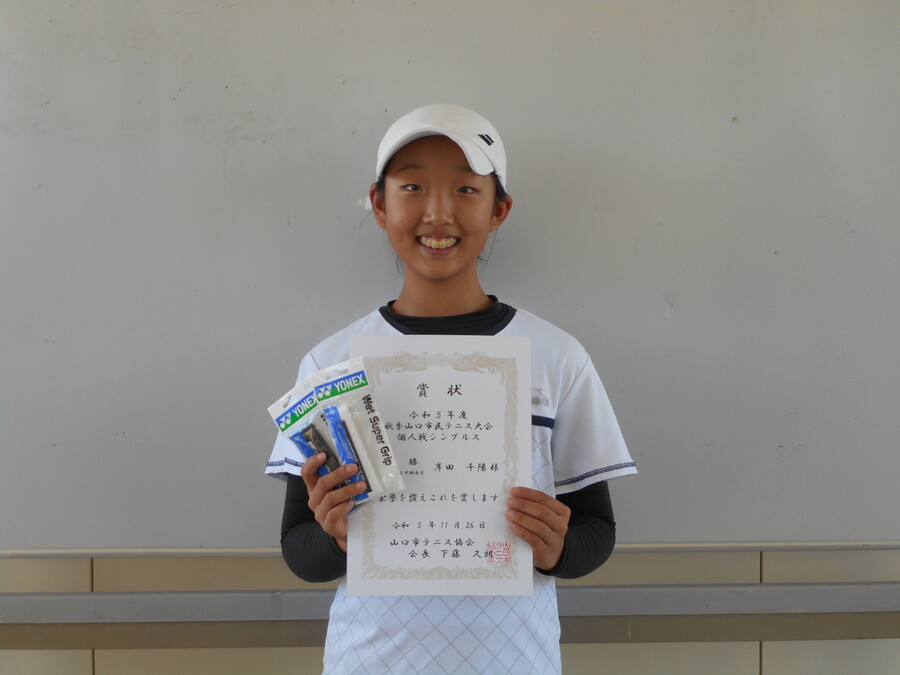 YONEX
YONEX
Wet Super Grip
賞状
令和5年度
秋季山口市民テニス大会
個人戦シングルス
勝 岸田 千陽 様
栄誉を讃えこれを賞します
令和 5年11月26日
山口市テニス協会
会長 下藤 久朗